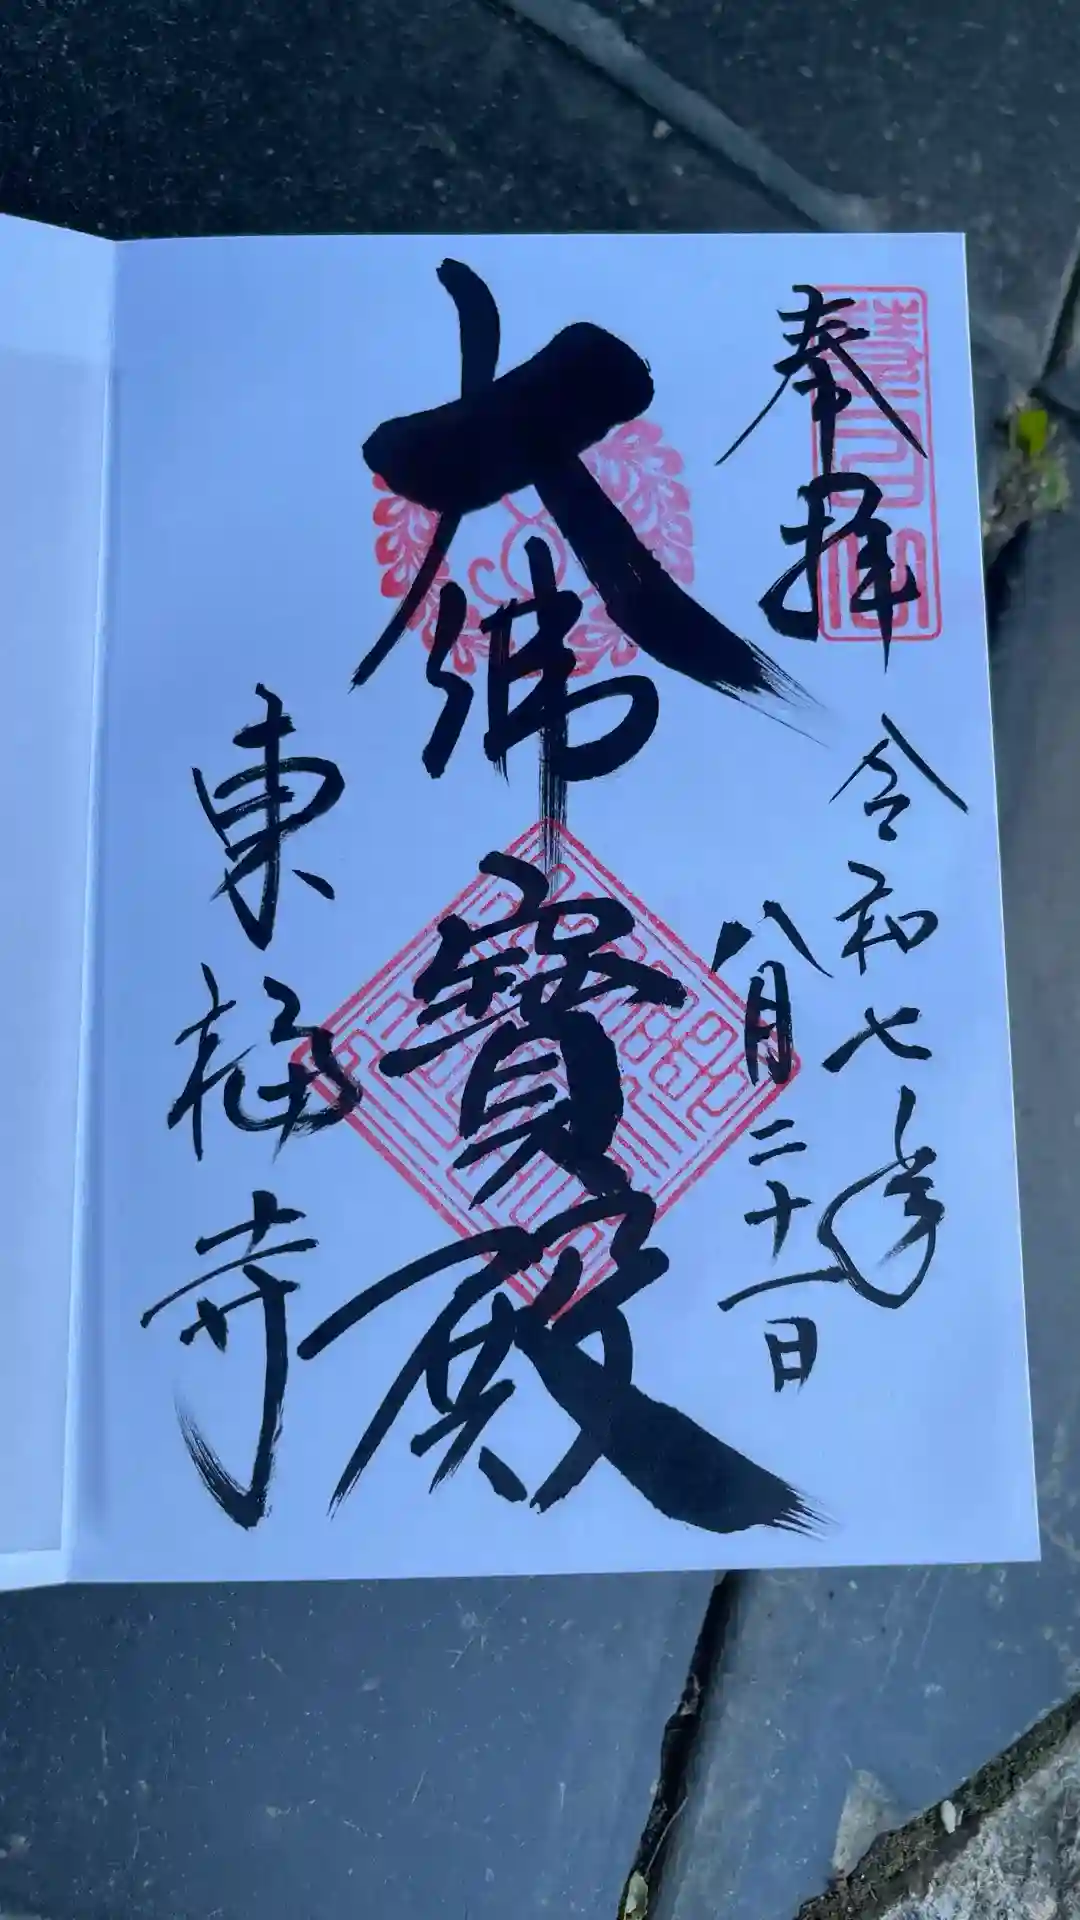 奉拝
令和七年
八月二十一日
大佛寳殿
東福寺